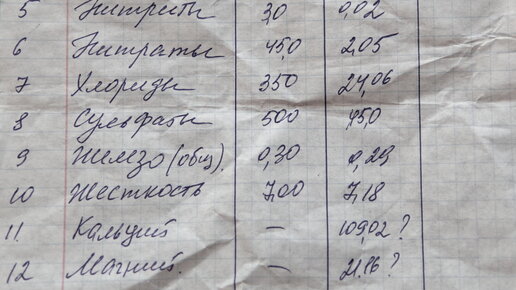 5 Нитриты 3,0 0,02
6 Нитраты 45,0 2,05
7 Хлориды 350 24,06
8 Сульфаты 500 45,0
9 Железо (общ). 0,30 0,29
10 Жесткость 7,00 7,18
11. Кальций — 109,02 ?
12 Магний. — 21.16 ?